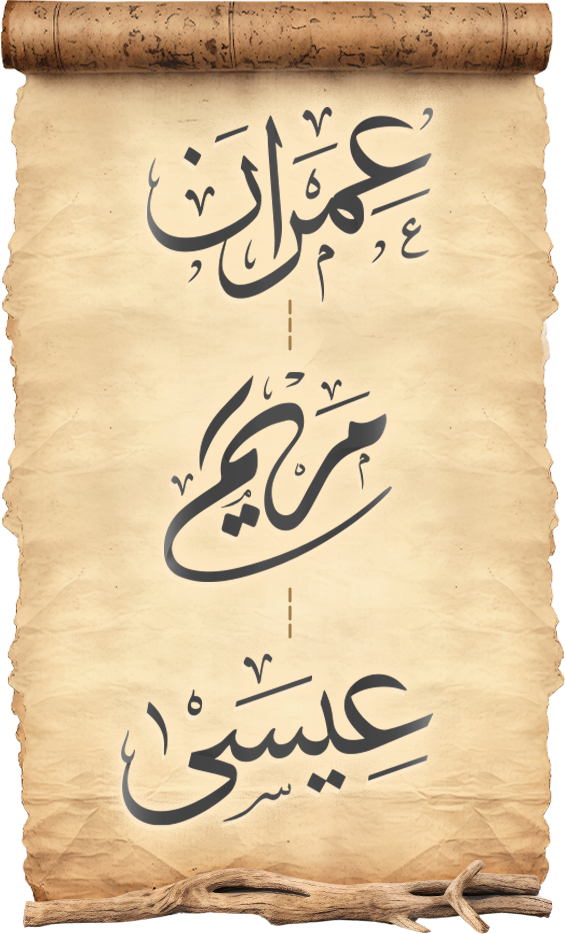 عِمْرَان
مَرْيَم
عِيسَىٰ